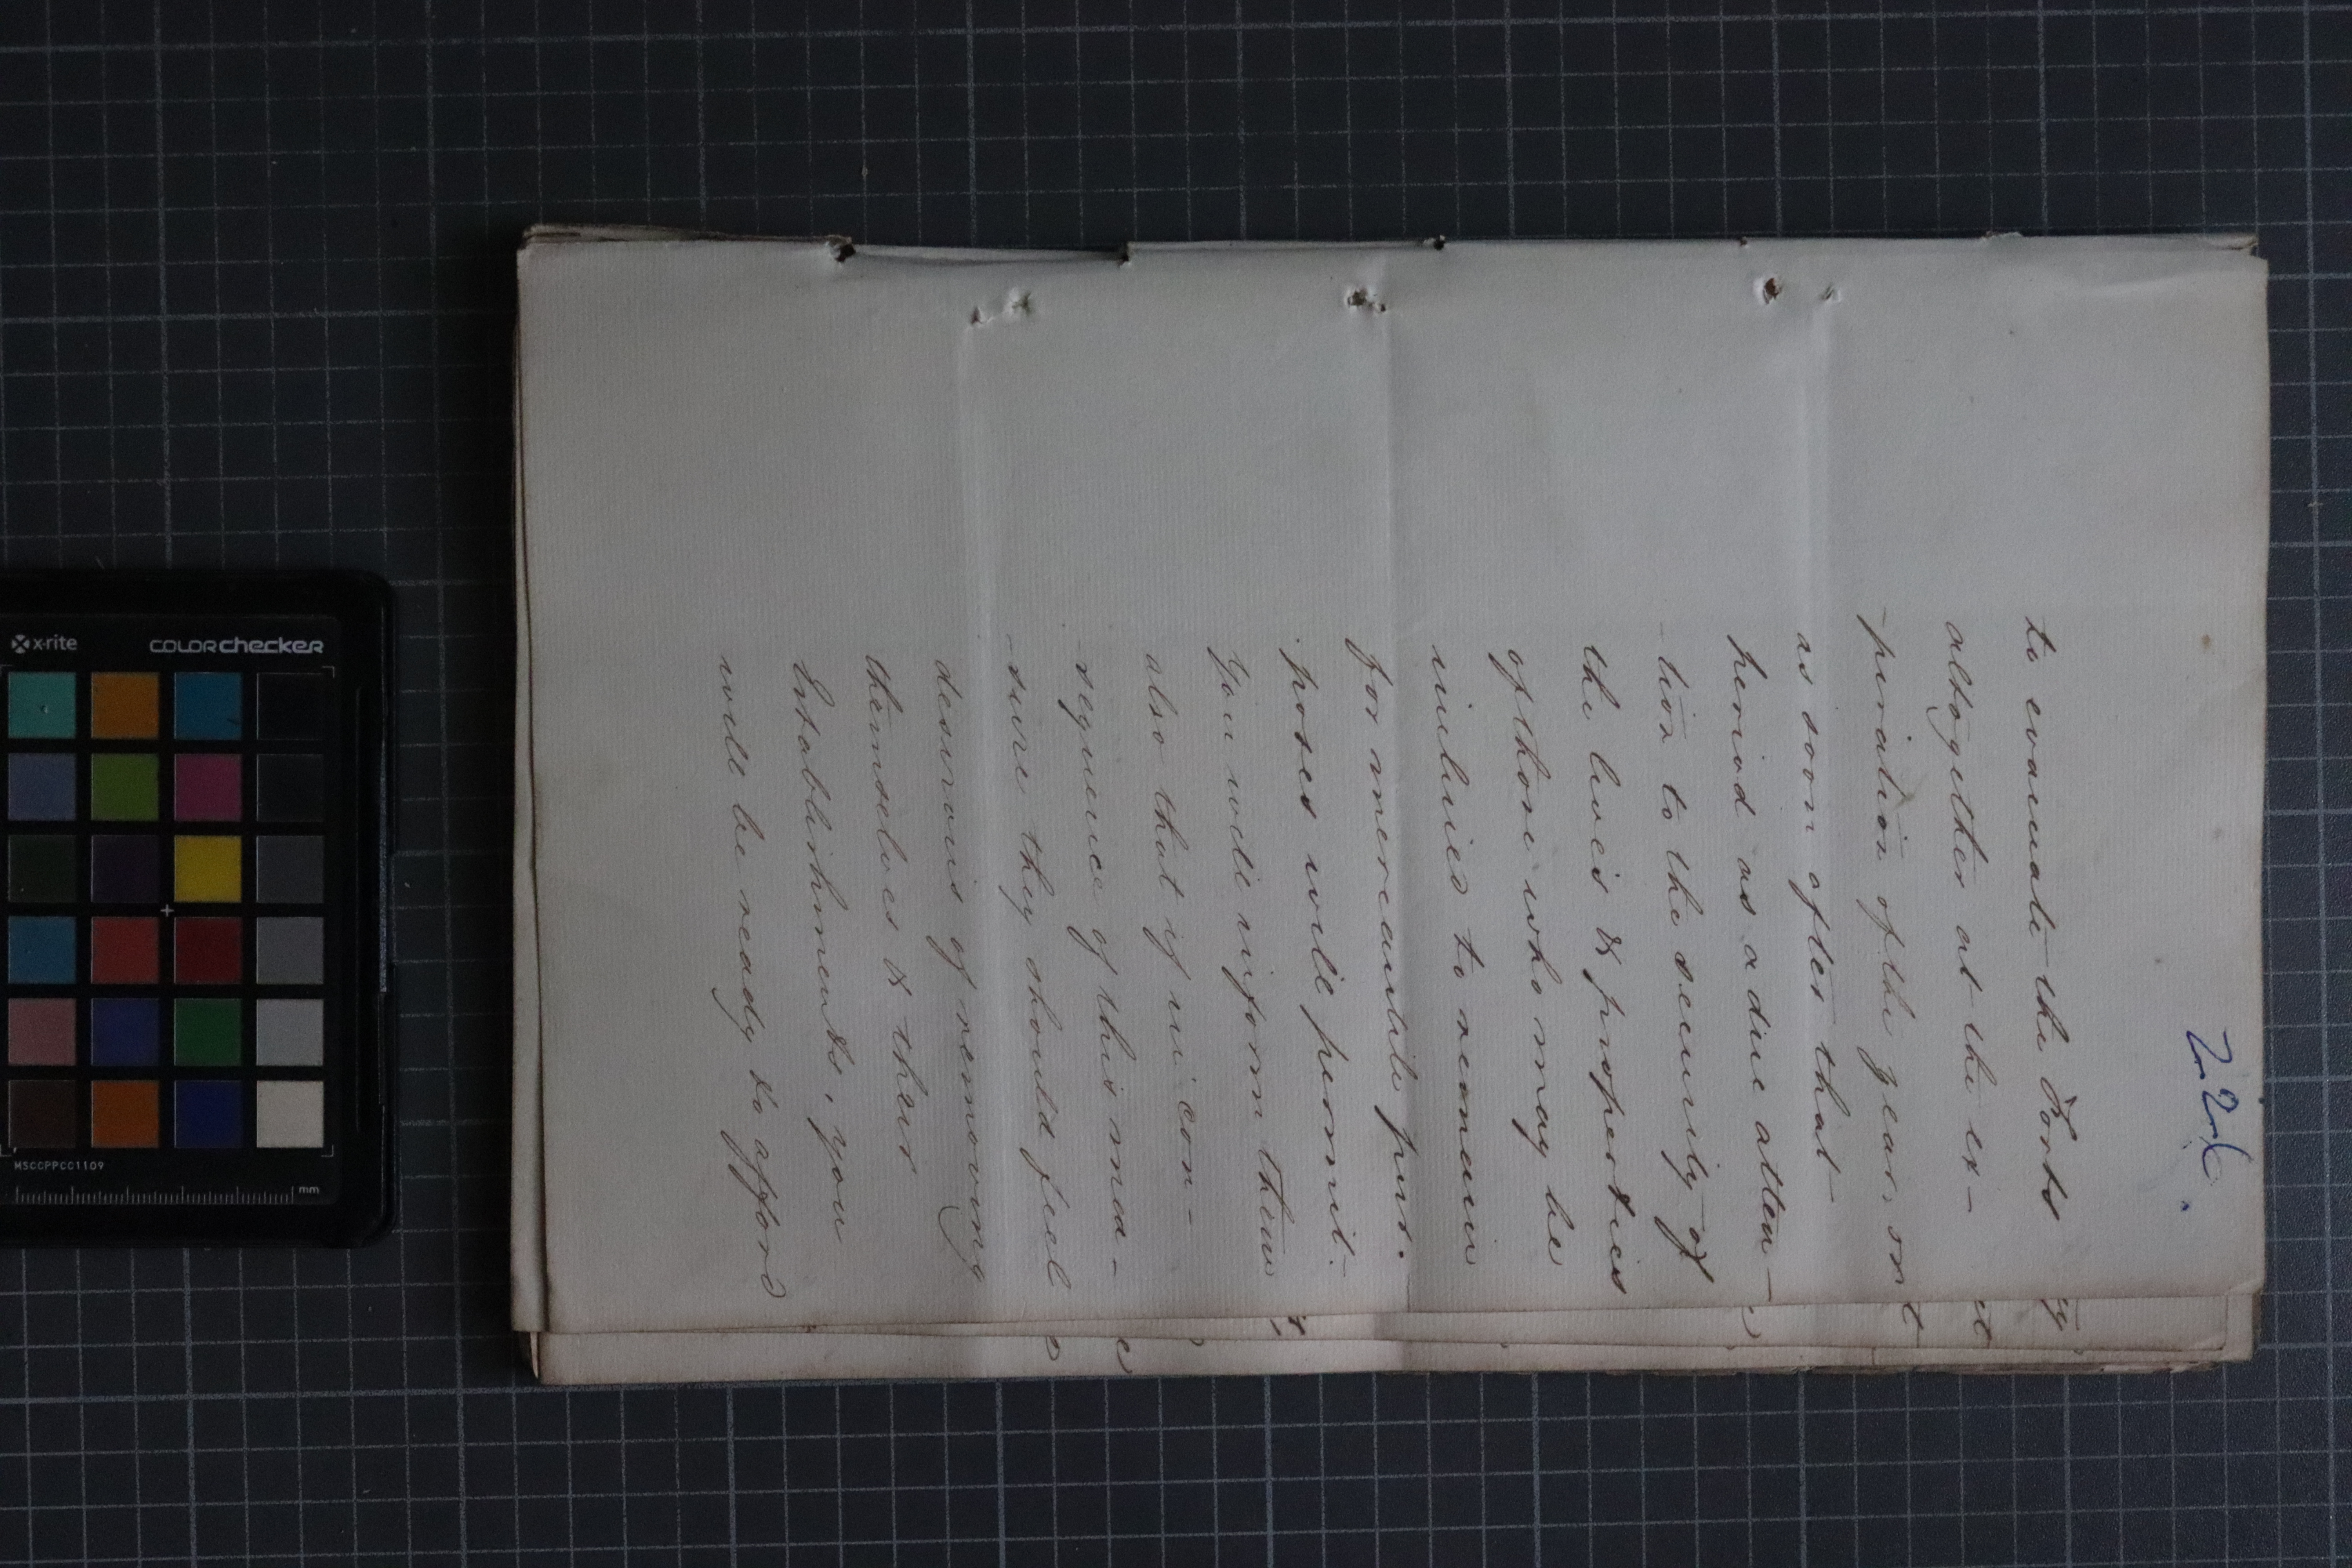 to evacuate the Forts
altogether at the ex-
-piration of the year, or
as soon after that
period as a due atten-
-tion to the security of
the lives & properties
of those who may be
inclined to remain
for mercantile pur.
poses will permit.
You will inform them
also that if in con-
-sequence of this mea-
-sure they should feel
desirous of removing
themselves & their
Establishments, you
will be ready to afford
x-rite
COLORchecker
MSCCPPCC1109
mm